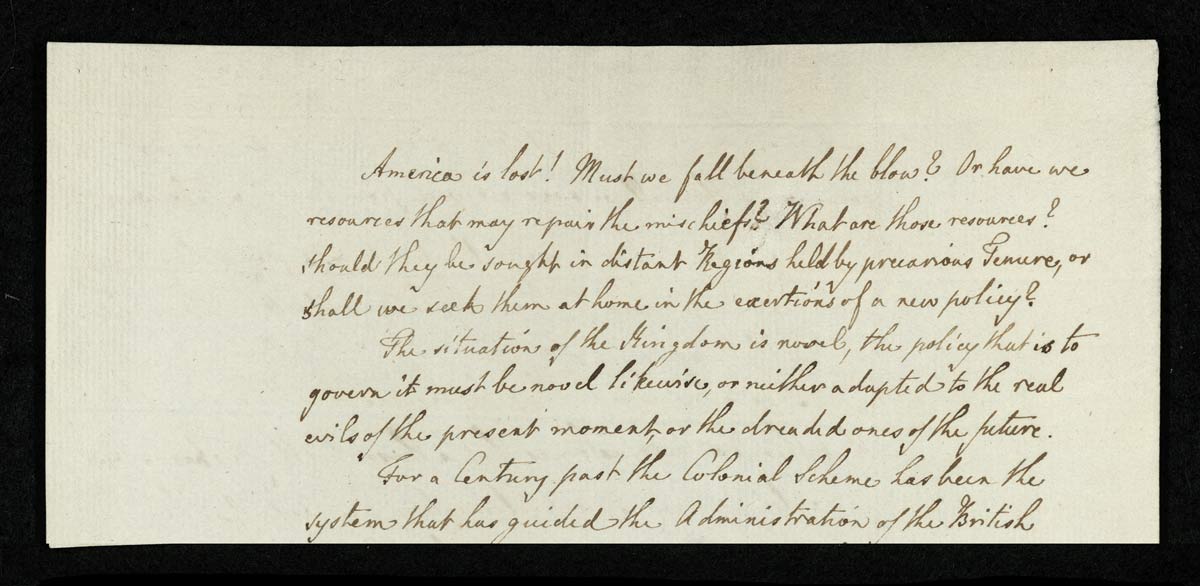 America is lost! Must we fall beneath the blow? Or have we
resources that may repair the mischiefs? What are those resources?
should they be sought in distant Regions held by precarious Tenure, or
shall we seek them at home in the exertions of a new policy?
The situation of the Kingdom is novel, the policy that is to
govern it must be novel likewise, or neither adapted to the real
evils of the present moment, or the dreaded ones of the future.
For a Century past the Colonial Scheme has been the
system that has guided the Administration of the British